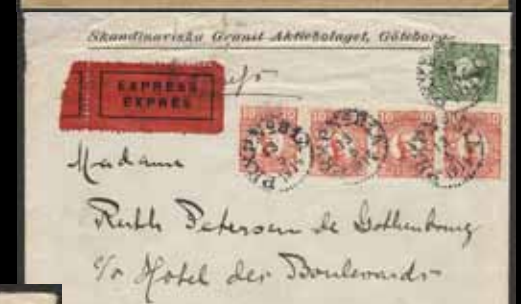 Skandinaviska Granit Aktiebolaget, Göteborg
EXPRESS
EXPRÈS
10 10 10 10
Madame
Ruth Petersen de Gothenbourg
c/o Hotel des Boulevards